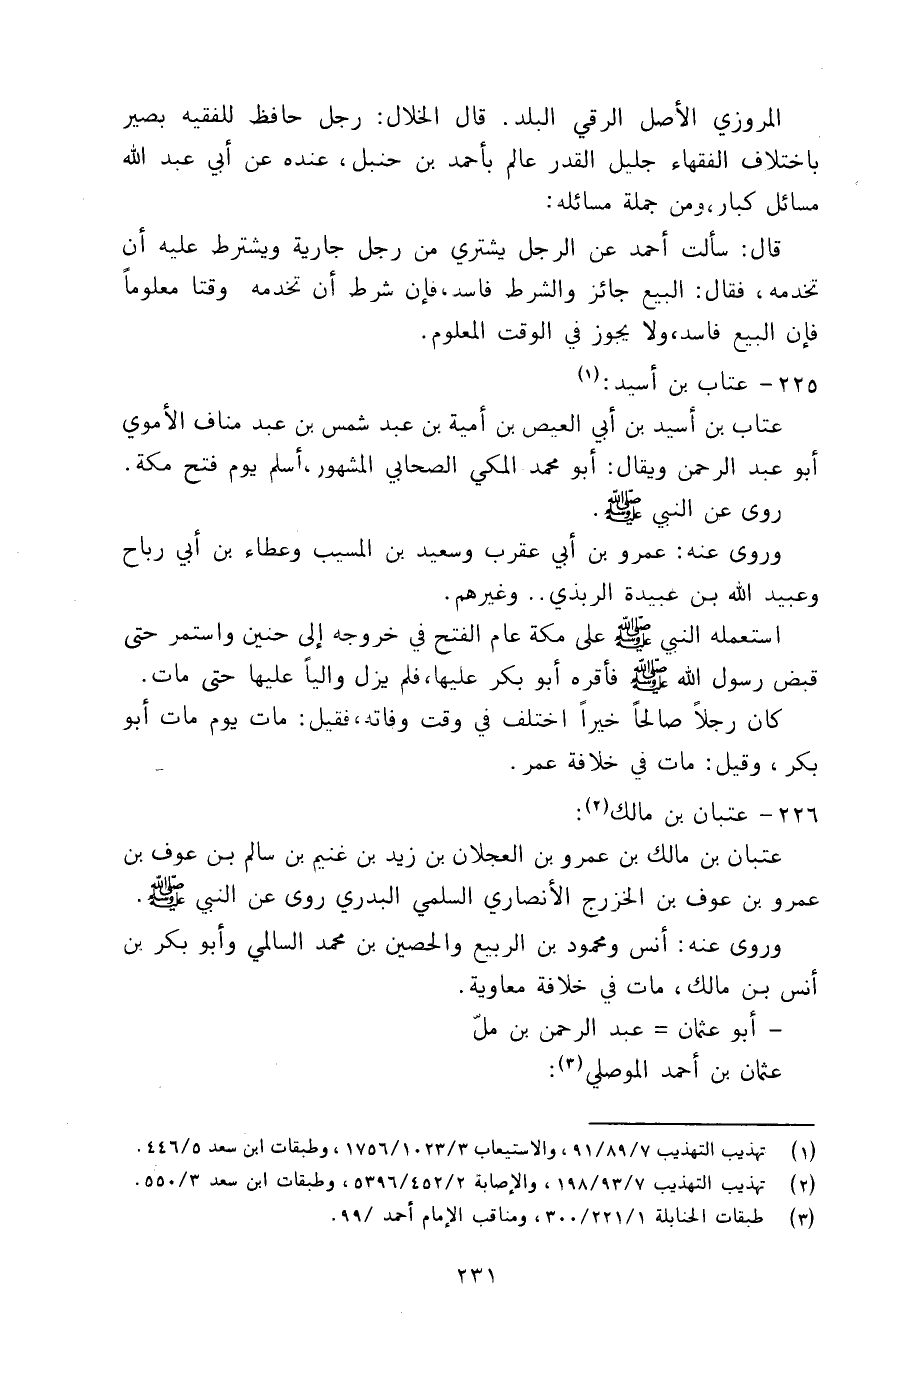 المروزي الأصل الرقي البلد. قال الخلال: رجل حافظ للفقيه بصير
باختلاف الفقهاء جليل القدر عالم بأحمد بن حنبل، عنده عن أبي عبد الله
مسائل كبار،ومن جملة مسائله:
قال: سألت أحمد عن الرجل يشتري من رجل جارية ويشترط عليه أن
تخدمه، فقال: البيع جائز والشرط فاسد،فإن شرط أن تخدمه وقتا معلوماً
فإن البيع فاسد،ولا يجوز في الوقت المعلوم.
٢٢٥- عتاب بن أسيد:(١)
عتاب بن أسيد بن أبي العيص بن أمية بن عبد شمس بن عبد مناف الأموي
أبو عبد الرحمن ويقال: أبو محمد المكي الصحابي المشهور،أسلم يوم فتح مكة.
روى عن النبي ﷺ.
وروى عنه: عمرو بن أبي عقرب وسعيد بن المسيب وعطاء بن أبي رباح
وعبيد الله بن عبيدة الربذي.. وغيرهم.
استعمله النبي ﷺ على مكة عام الفتح في خروجه إلى حنين واستمر حتى
قبض رسول الله ﷺ فأقره أبو بكر عليها،فلم يزل والياً عليها حتى مات.
كان رجلاً صالحاً خيراً اختلف في وقت وفاته،فقيل: مات يوم مات أبو
بكر، وقيل: مات في خلافة عمر.
٢٢٦- عتبان بن مالك(٢):
عتبان بن مالك بن عمرو بن العجلان بن زيد بن غنيم بن سالم بن عوف بن
عمرو بن عوف بن الخزرج الأنصاري السلمي البدري روى عن النبي ﷺ.
وروى عنه: أنس ومحمود بن الربيع والحصين بن محمد السالمي وأبو بكر بن
أنس بن مالك، مات في خلافة معاوية.
- أبو عثمان = عبد الرحمن بن ملّ
عثمان بن أحمد الموصلي(٣):
(١) تهذيب التهذيب ٩١/٨٩/٧، والاستيعاب ١٧٥٦/١٠٢٣/٣، وطبقات ابن سعد ٤٤٦/٥.
(٢) تهذيب التهذيب ١٩٨/٩٣/٧، والإصابة ٥٣٩٦/٤٥٢/٢، وطبقات ابن سعد ٥٥٠/٣.
(٣) طبقات الحنابلة ٣٠٠/٢٢١/١، ومناقب الإمام أحمد /٩٩.
٢٣١